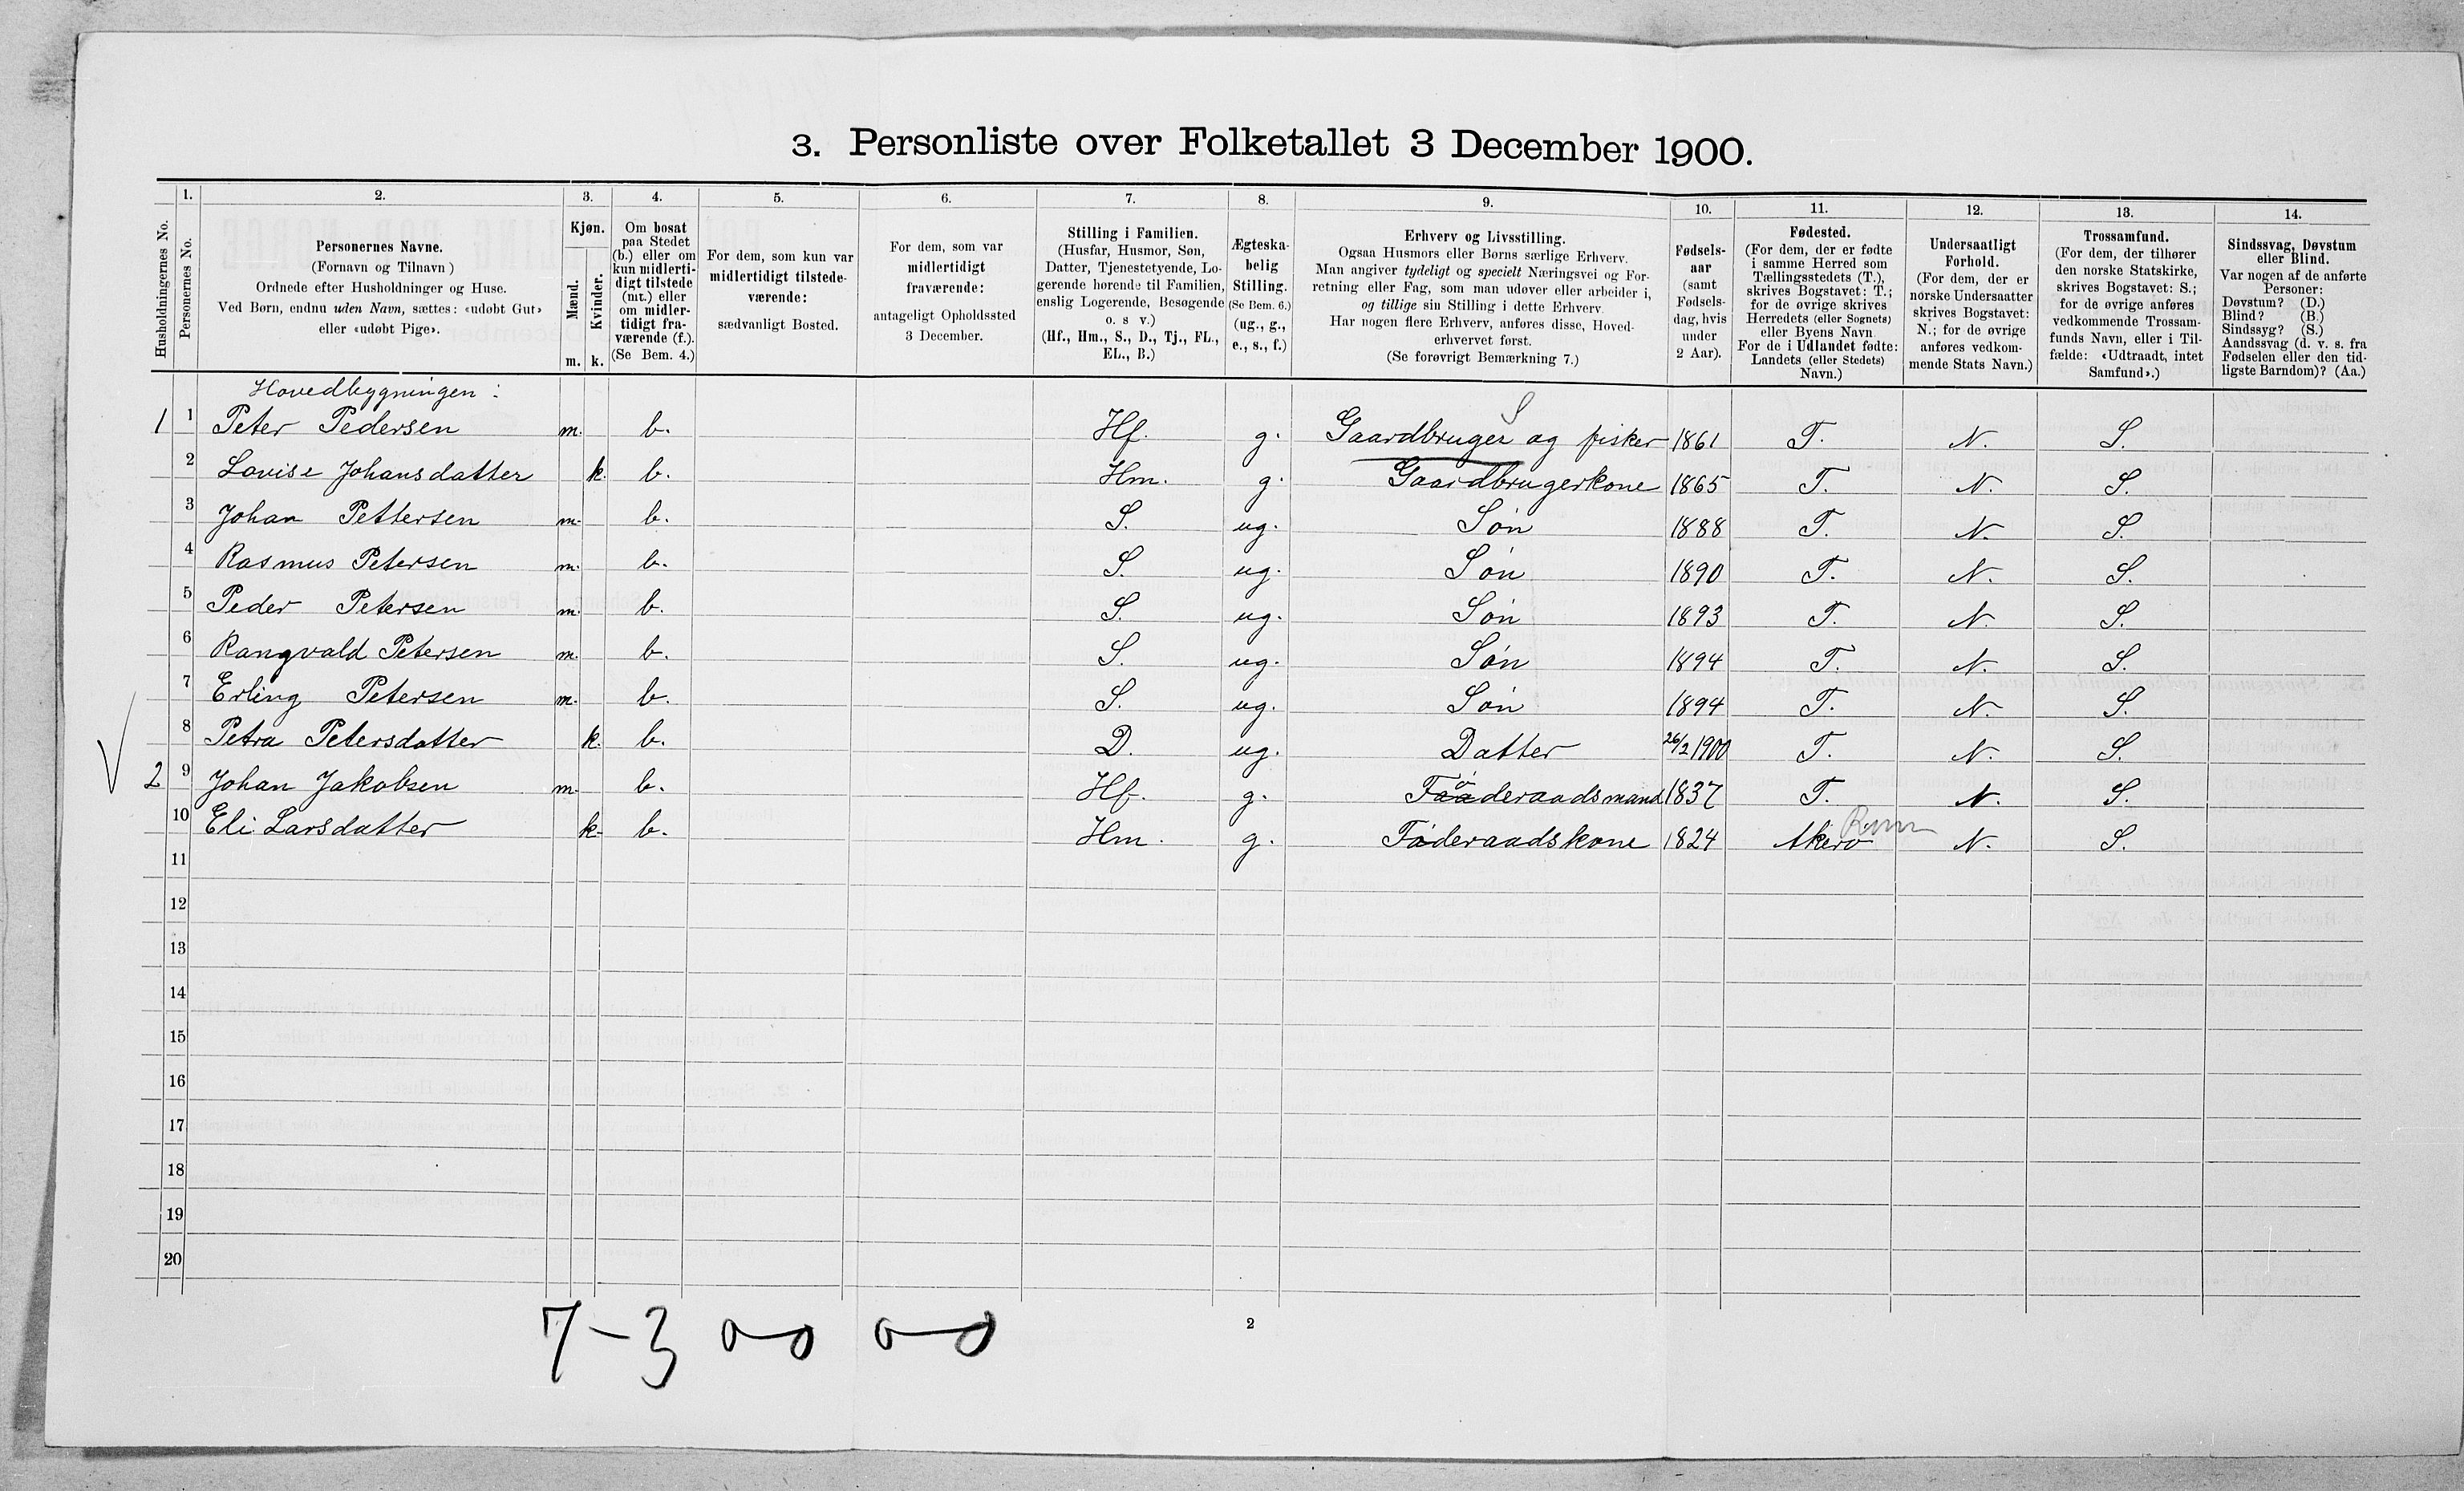 3. Personliste over Folketallet 3 December 1900.
1. 2. 3. 4. 5. 6. 7. 8. 9. 10. 11. 12. 13. 14.
Husholdningernes No.
Personernes No.
Personernes Navne.
(Fornavn og Tilnavn)
Ordnede efter Husholdninger og Huse.
Ved Børn, endnu uden Navn, sættes: «udøbt Gut»
eller «udøbt Pige».
Kjøn.
Mænd.
Kvinder.
m. k.
Om bosat
paa Stedet
(b.) eller om
kun midlerti-
digt tilstede
(mt.) eller
om midler-
tidigt fra-
værende (f.).
(Se Bem. 4.)
For dem, som kun var
midlertidigt tilstede-
værende:
sædvanligt Bosted.
For dem, som var
midlertidigt
fraværende:
antageligt Opholdssted
3 December.
Stilling i Familien.
(Husfar, Husmor, Søn,
Datter, Tjenestetyende, Lo-
gerende hørende til Familien,
enslig Logerende, Besøgende
o. s v.)
(Hf., Hm., S., D., Tj., FL.,
EL., B.)
Ægteska-
belig
Stilling.
(Se Bem. 6.)
(ug., g.,
e., s., f.)
Erhverv og Livsstilling.
Ogsaa Husmors eller Børns særlige Erhverv.
Man angiver tydeligt og specielt Næringsvei og For-
retning eller Fag, som man udøver eller arbeider i,
og tillige sin Stilling i dette Erhverv.
Har nogen flere Erhverv, anføres disse, Hoved-
erhvervet først.
(Se forøvrigt Bemærkning 7.)
Fødsels-
aar
(samt
Fødsels-
dag, hvis
under
2 Aar).
Fødested.
(For dem, der er fødte
i samme Herred som
Tællingsstedets (T.),
skrives Bogstavet: T.;
for de øvrige skrives
Herredets (eller Sognets)
eller Byens Navn
For de i Udlandet fødte:
Landets (eller Stedets)
Navn.)
Undersaatligt
Forhold.
(For dem, der er
norske Undersaatter
skrives Bogstavet:
N.; for de øvrige
anføres vedkom-
mende Stats Navn.)
Trossamfund.
(For dem, der tilhører
den norske Statskirke,
skrives Bogstavet: S.;
for de øvrige anføres
vedkommende Trossam-
funds Navn, eller i Til-
fælde: «Udtraadt, intet
Samfund».)
Sindssvag, Døvstum
eller Blind.
Var nogen af de anførte
Personer:
Døvstum? (D.)
Blind? (B.)
Sindssyg? (S.)
Aandssvag (d. v. s. fra
Fødselen eller den tid-
ligste Barndom)? (Aa.)
Hovedbygningen:
S
1 1 Peter Pedersen m. b. Hf. g. Gaardbruger og fisker 1861 T. N. S.
2 Lovise Johansdatter k. b. Hm. g. Gaardbrugerkone 1865 T. N. S.
3 Johan Pettersen m. b. S. ug. Søn 1888 T. N. S.
4 Rasmus Petersen m. b. S. ug. Søn 1890 T. N. S.
5 Peder Petersen m. b. S. ug. Søn 1893 T. N. S.
6 Rangvald Petersen m. b. S. ug. Søn 1894 T. N. S.
7 Erling Petersen m. b. S. ug. Søn 1894 T. N. S.
8 Petra Petersdatter k. b. D. ug. Datter 26/2 1900 T. N. S.
2 9 Johan Jakobsen m. b. Hf. g. Føderaadsmand 1837 T. N. S.
10 Eli Larsdatter k. b. Hm. g. Føderaadskone 1824 Akerø N. S.
11
12
13
14
15
16
17
18
19
20
7-3 0-0 0-0
2